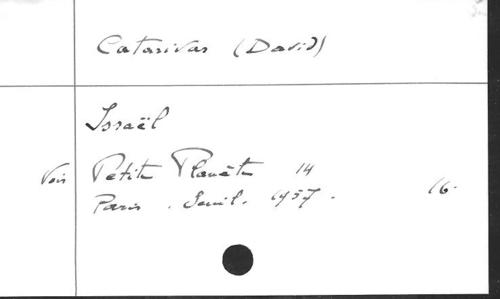 Catarivas (David)
Israël
Voir Petite Planète 14
Paris. Seuil. 1957. 16.